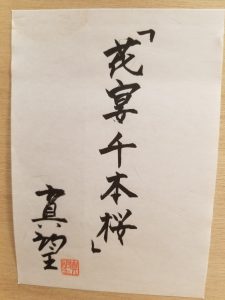 「花宴千本桜」
真望